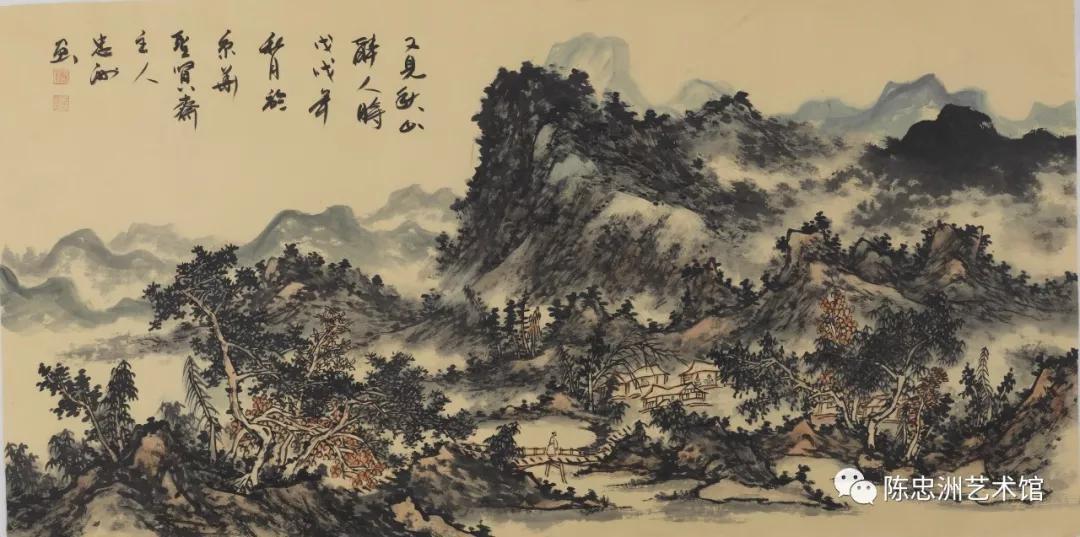 又見秋山
醉人時
戊戌年
秋月於
京華
齋
主人
忠洲
画
陈忠洲艺术馆